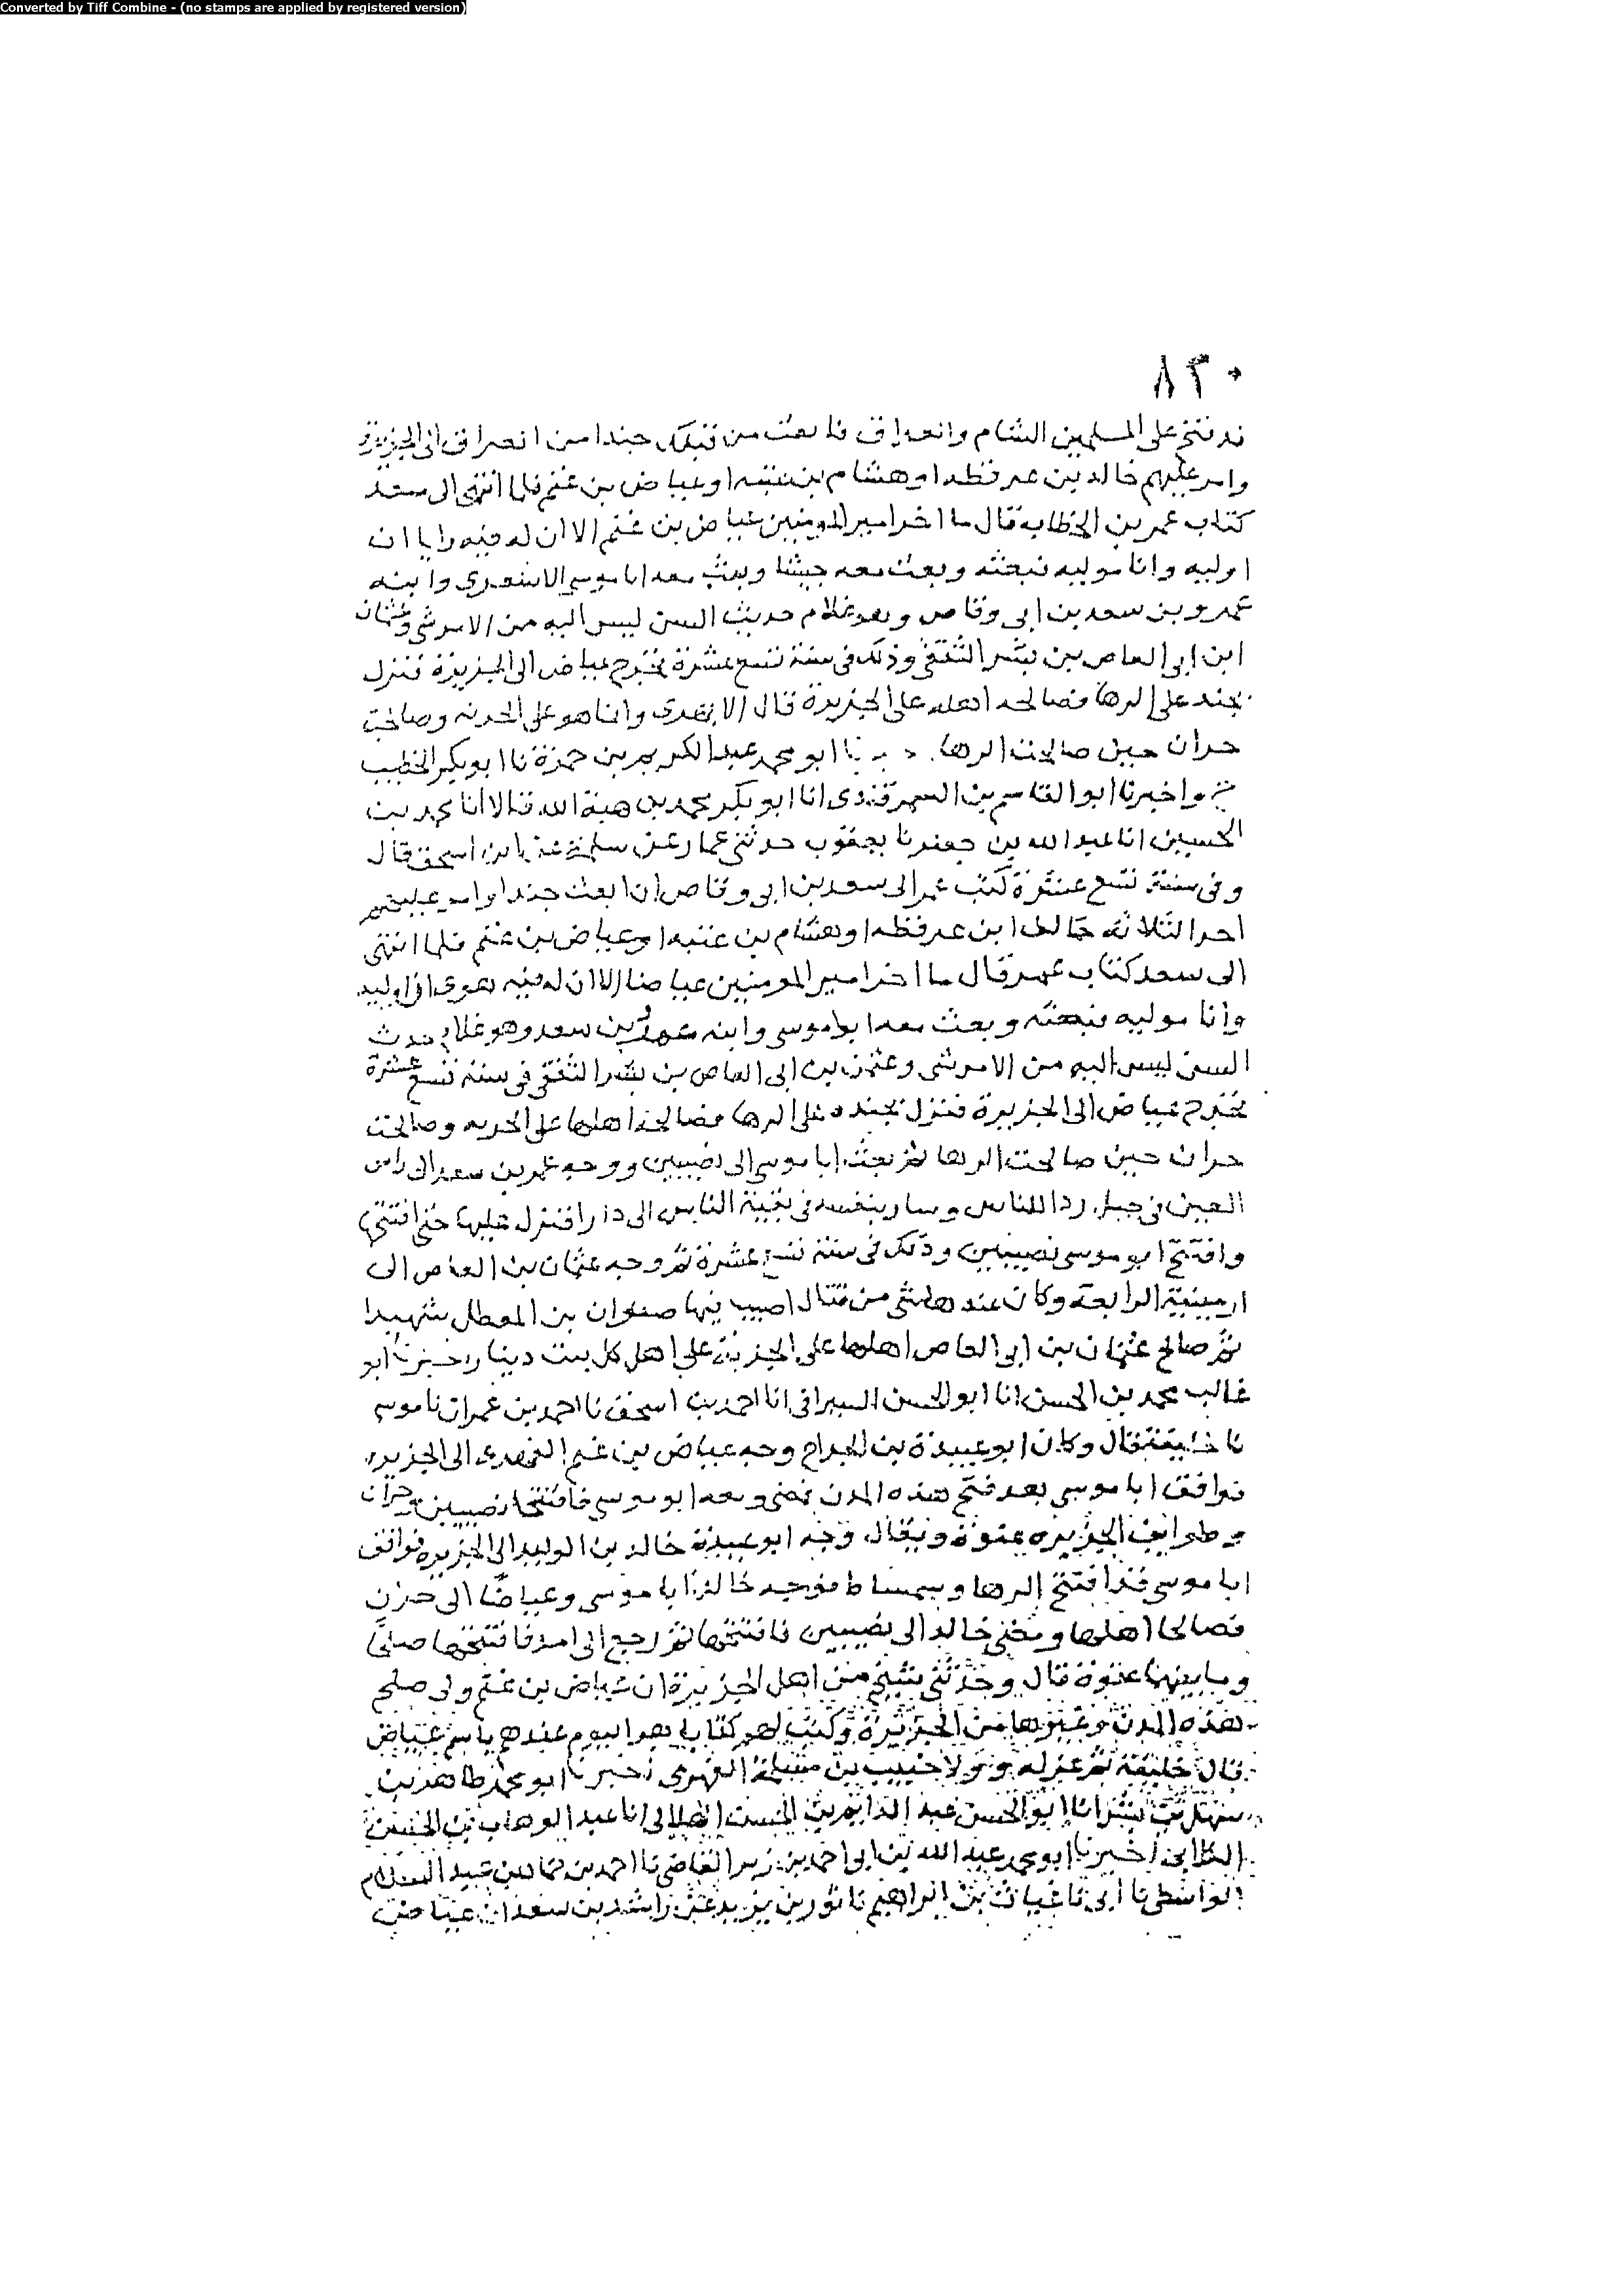 Converted by Tiff Combine - (no stamps are applied by registered version)
٨٣٠
قد فتح على المسلمين الشام والعراق فابعث من قبلك جندا من العراق الى الجزيرة
وامر عليهم خالد بن عرفطه او هشام بن عتبه او عياض بن غنم فلما انتهى الى سعد
كتاب عمر بن الخطاب قال ما اخر امير المومنين عياض بن غنم الا ان له فيه رايا ان
اوليه وانا موليه فبعثه وبعث معه جيشا وبعث معه ابا موسى الاشعرى وابنه
عمرو بن سعد بن ابى وقاص وهو غلام حديث السن ليس اليه من الامر شى وعثمان
ابن ابى العاص بن بشر الثقفى وذلك فى سنة تسع عشرة فخرج عياض الى الجزيرة فنزل
بجند على الرها فصالحه اهلها على الجزيرة قال الازهرى وانما هو على الجزيه وصالحت
حران حين صالحت الرها نا ابو محمد عبد الكريم بن حمزة نا ابو بكر الخطيب
ح واخبرنا ابو القاسم بن السمرقندى انا ابو بكر محمد بن هبة الله قالا انا محمد بن
الحسين انا عبد الله بن جعفر نا يعقوب حدثنى عمار عن سلمة عن ابن اسحق قال
وفى سنة تسع عشرة كتب عمر الى سعد بن ابى وقاص ان ابعث جندا وامر عليهم
احد الثلاثة خالد ابن عرفطه او هشام بن عتبه او عياض بن غنم فلما انتهى
الى سعد كتاب عمر قال ما اخر امير المومنين عياضا الا ان له فيه هوى ان اوليه
وانا موليه فبعثه وبعث معه ابو موسى وابنه عمر بن سعد وهو غلام حدث
السن ليس اليه من الامر شى وعثمن بن ابى العاص بن بشر الثقفى فى سنة تسع عشرة
فخرج عياض الى الجزيرة فنزل بجنده على الرها فصالحه اهلها على الجزيه وصالحت
حران حين صالحت الرها ثم بعث ابا موسى الى نصيبين ووجه عمر بن سعد الى راس
العين فى خيل ردا للناس وسار بنفسه فى بقية الناس الى دارا فنزل عليها حتى افتتحها
وافتتح ابو موسى نصيبين وذلك فى سنة تسع عشرة ثم وجه عثمان بن العاص الى
ارمينية الرابعة وكان عندها شى من قتال اصيب فيها صفوان بن المعطل شهيدا
ثم صالح عثمان بن ابى العاص اهلها على الجزية على اهل كل بيت دينار اخبرنا ابو
غالب محمد بن الحسن انا ابو الحسن السيرافى انا احمد بن اسحق نا احمد بن عمران نا موسى
نا خليفة قال وكان ابو عبيدة بن الجراح وجه عياض بن غنم الفهرى الى الجزيره
فوافق ابا موسى بعد فتح هذه المدن فمضى ومعه ابو موسى فافتتحا نصيبين وحران
وطوايف الجزيره عنوة ويقال وجه ابو عبيدة خالد بن الوليد الى الجزيرة فوافق
ابا موسى قد افتتح الرها وسميساط فوجه خالد ابا موسى وعياضا الى حران
فصالحا اهلها ومضى خالد الى نصيبين فافتتحها ثم رجع الى امد فافتتحها صلحا
وما بينهما عنوة قال وحدثنى شيخ من اهل الجزيرة ان عياض بن غنم ولى صلح
هذه المدن وغيرها من الجزيرة وكتب لهم كتابا هو اليوم عندهم باسم عياض
قال خليفة ثم عزله وولا حبيب بن مسلمة الفهرى اخبرنا ابو محمد طاهر بن
سهل بن بشر انا ابو الحسن عبد الدايم بن الحسن الهلالى انا عبد الوهاب بن الحسن
الكلابى اخبرنا ابو محمد عبد الله بن ابى احمد بن زبر القاضى نا احمد بن عبيد السلام
الواسطى نا ابى نا غياث بن ابراهيم نا ثور بن يزيد عن راشد بن سعد ان عياض